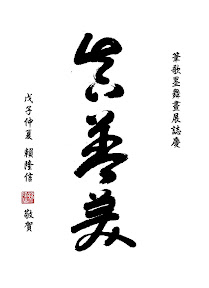 筆歌墨舞書展誌慶
真善美
戊子仲夏 賴隆信 敬賀